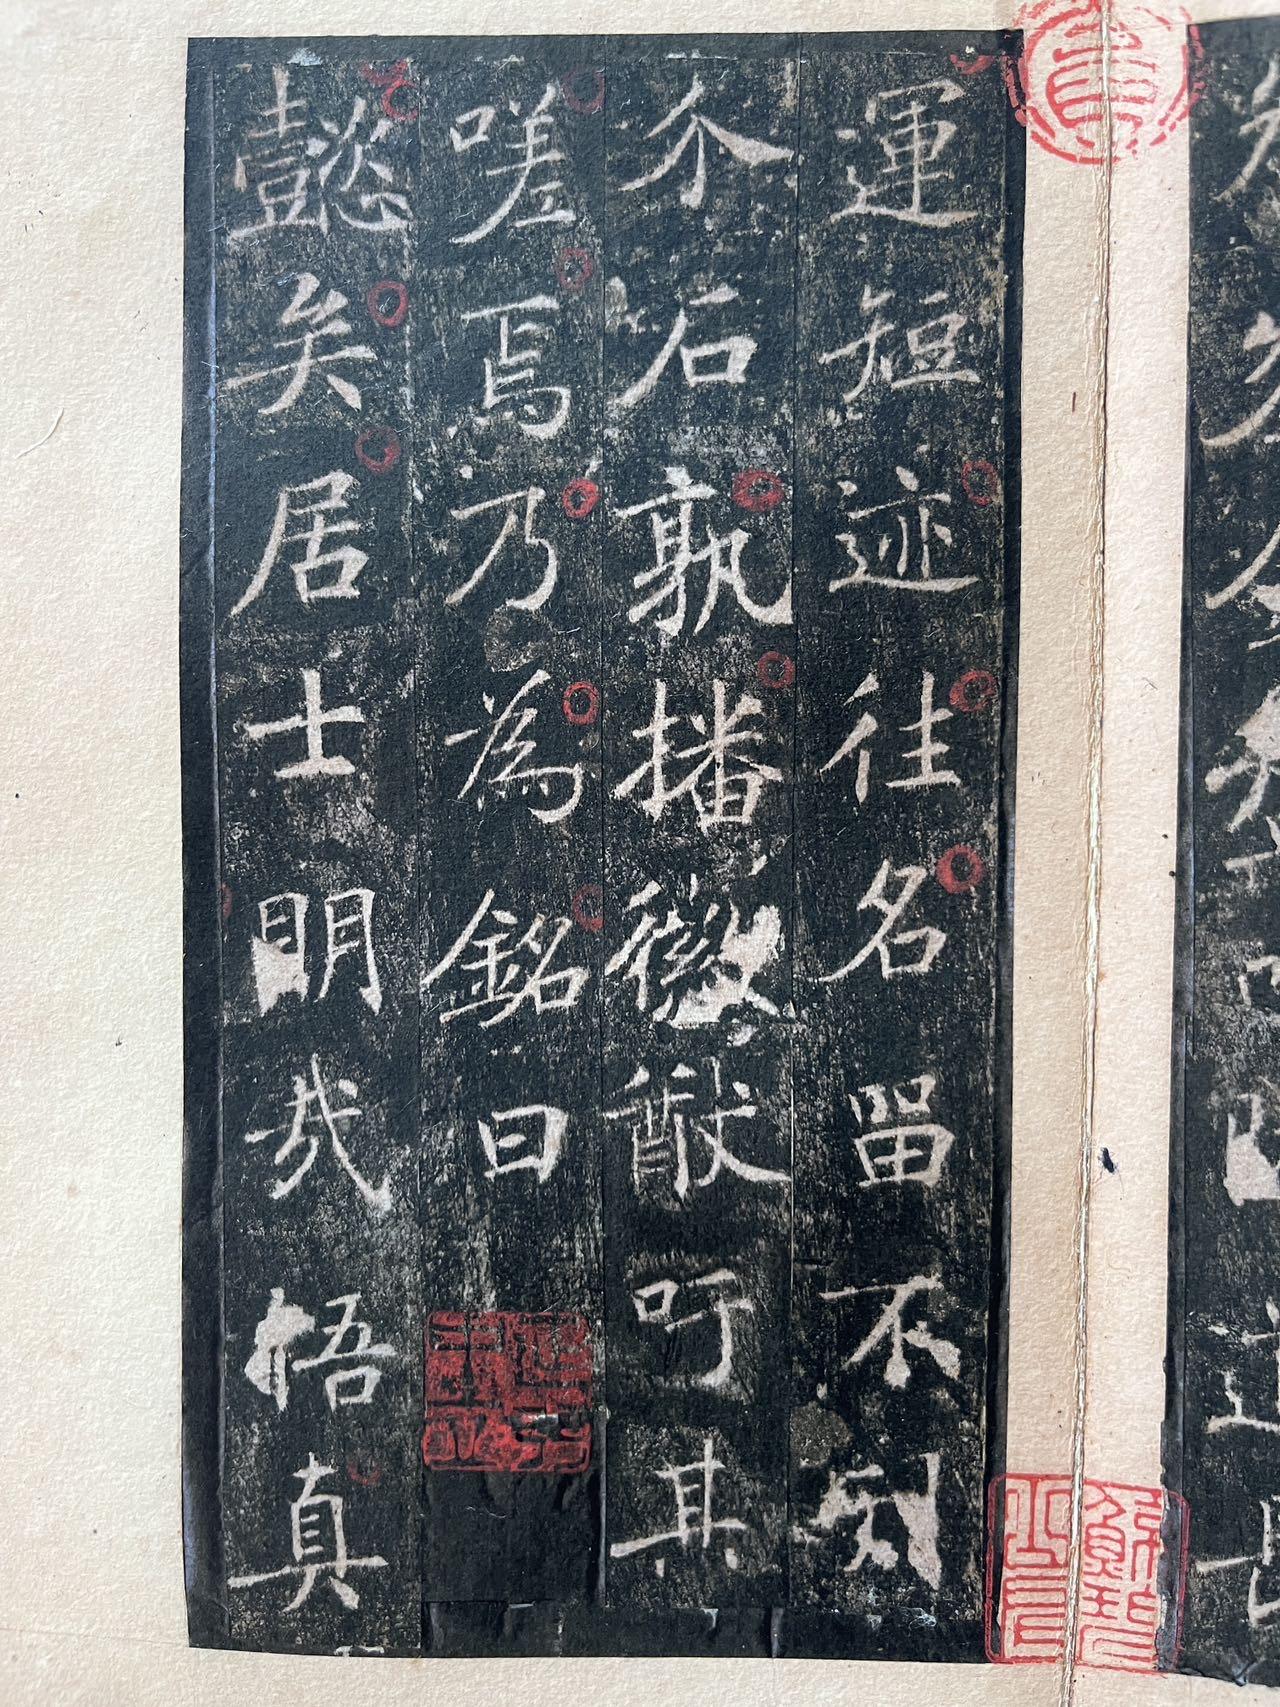 運短迹往名留不刻
介石孰播徽猷吁其
嗟焉乃為銘曰
懿矣居士明哉悟真